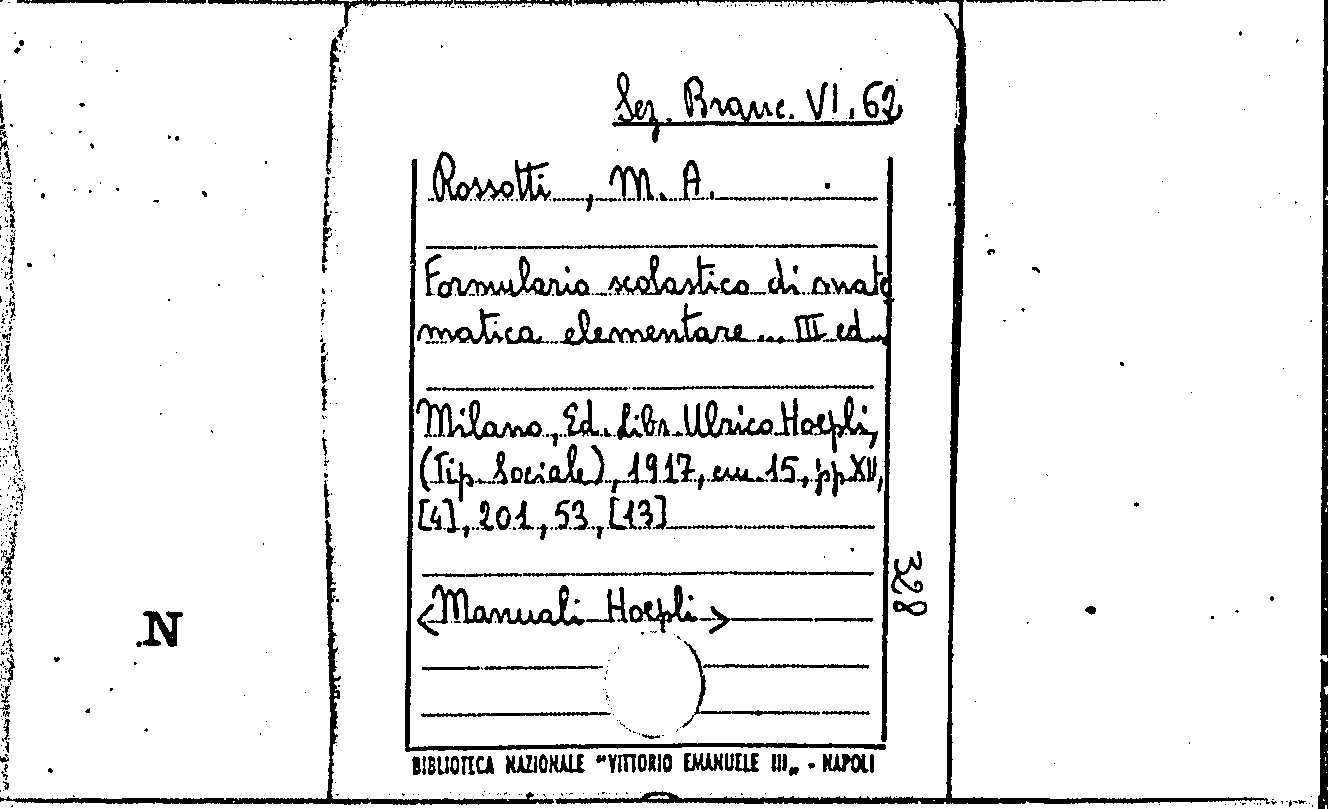 Sez. Branc. VI. 62
Rossotti, M. A.
Formulario scolastico di mate
matica elementare... III ed...
Milano, Ed. Libr. Ulrico Hoepli,
(Tip. Sociale), 1917, cm. 15, pp. XV,
[4], 201, 53, [13]
328
<Manuali Hoepli>
N
BIBLIOTECA NAZIONALE "VITTORIO EMANUELE III„ - NAPOLI